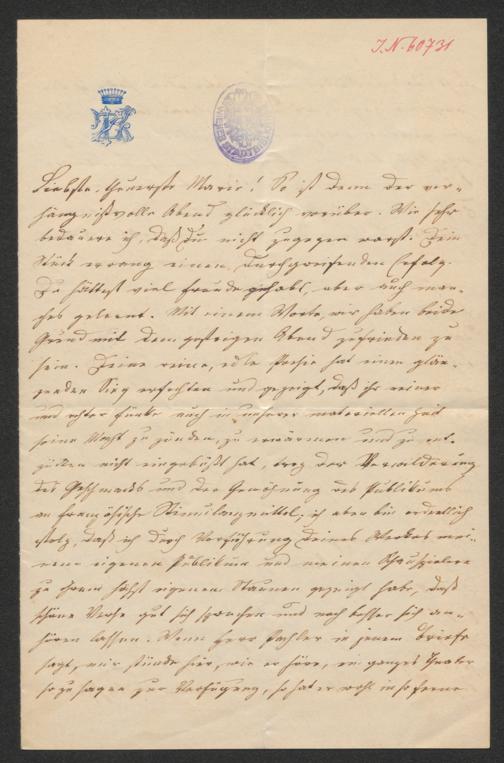 J. N. 60731
WIENER STADTBIBL
Liebste, theuerste Marie! So ist denn der ver-
hängnißvolle Abend glücklich vorüber. Wie sehr
bedauere ich, daß Du nicht zugegen warst. Dein
Stück errang einen durchgreifenden Erfolg.
Du hättest viel Freude gehabt, aber auch man-
ches gelernt. Mit einem Worte, wir haben beide
Grund mit dem gestrigen Abend zufrieden zu
sein. Deine reine, edle Poesie hat einen glän-
zenden Sieg erfochten und gezeigt, daß ihr reiner
und echter Funke auch in unserer materiellen Zeit
seine Macht zu zünden, zu erwärmen und zu ent-
zücken nicht eingebüßt hat, trotz der Verwilderung
des Geschmacks und der Gewöhnung des Publikums
an französische Stimulanzmittel; ich aber bin ordentlich
stolz, daß ich durch Vorführung Deines Werkes mei-
nem eigenen Publikum und meinen Schauspielern
zu ihrem höchst eigenen Staunen gezeigt habe, daß
schöne Verse gut sich sprechen und noch besser sich an-
hören lassen. Wenn Herr in jenem Briefe
sagt, mir stünde hier, wie er höre, ein ganzes Theater
so zu sagen zur Verfügung, so hat er wohl in so ferne